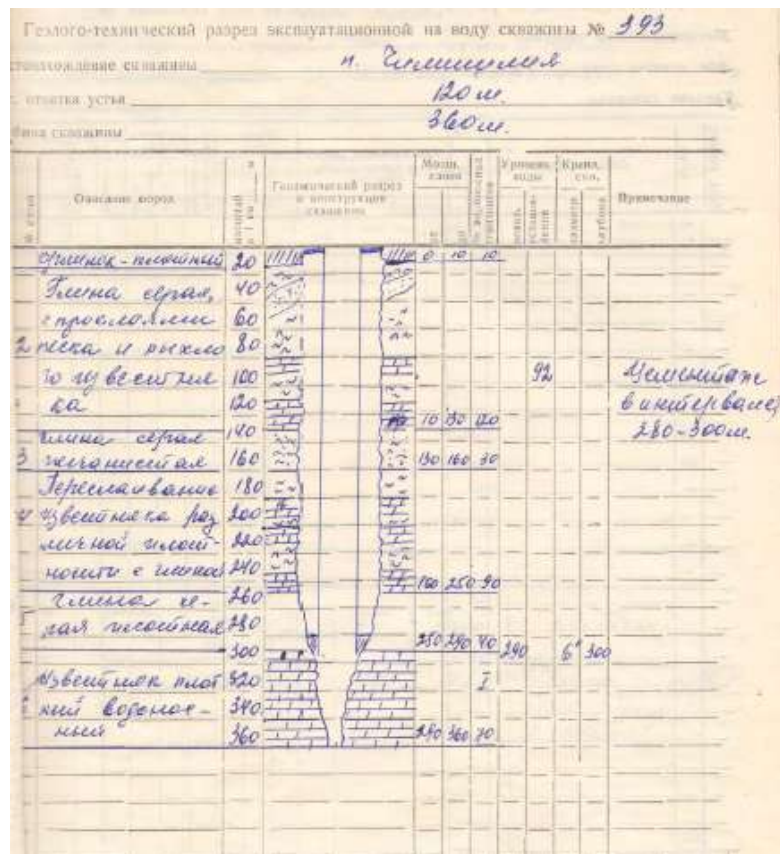 Геолого-технический разрез эксплуатационной на воду скважины № 393
скважины п.
отметка устья 120 м.
скважины 360 м.
Описание пород
Геологический разрез и конструкция скважины
Мощн. слоя
Уровень воды
Крепл. скв.
Примечание
плотный 20 0 10 10
Глина серая, 40
с прослоями 60
2 песка и рыхло 80
го известня 100 92 Цементаж
ка 120 в интервале
глина серая 140 10 130 120 280-300м.
3 песчанистая 160 130 160 30
Переслаивание 180
4 известняка раз 200
личной плот- 220
ности с глиной 240 160 250 90
глина се- 260
рая плотная 280
300 250 290 40 290 6" 300
Известняк плот 320 I
ный водонос- 340
ный 360 290 360 70